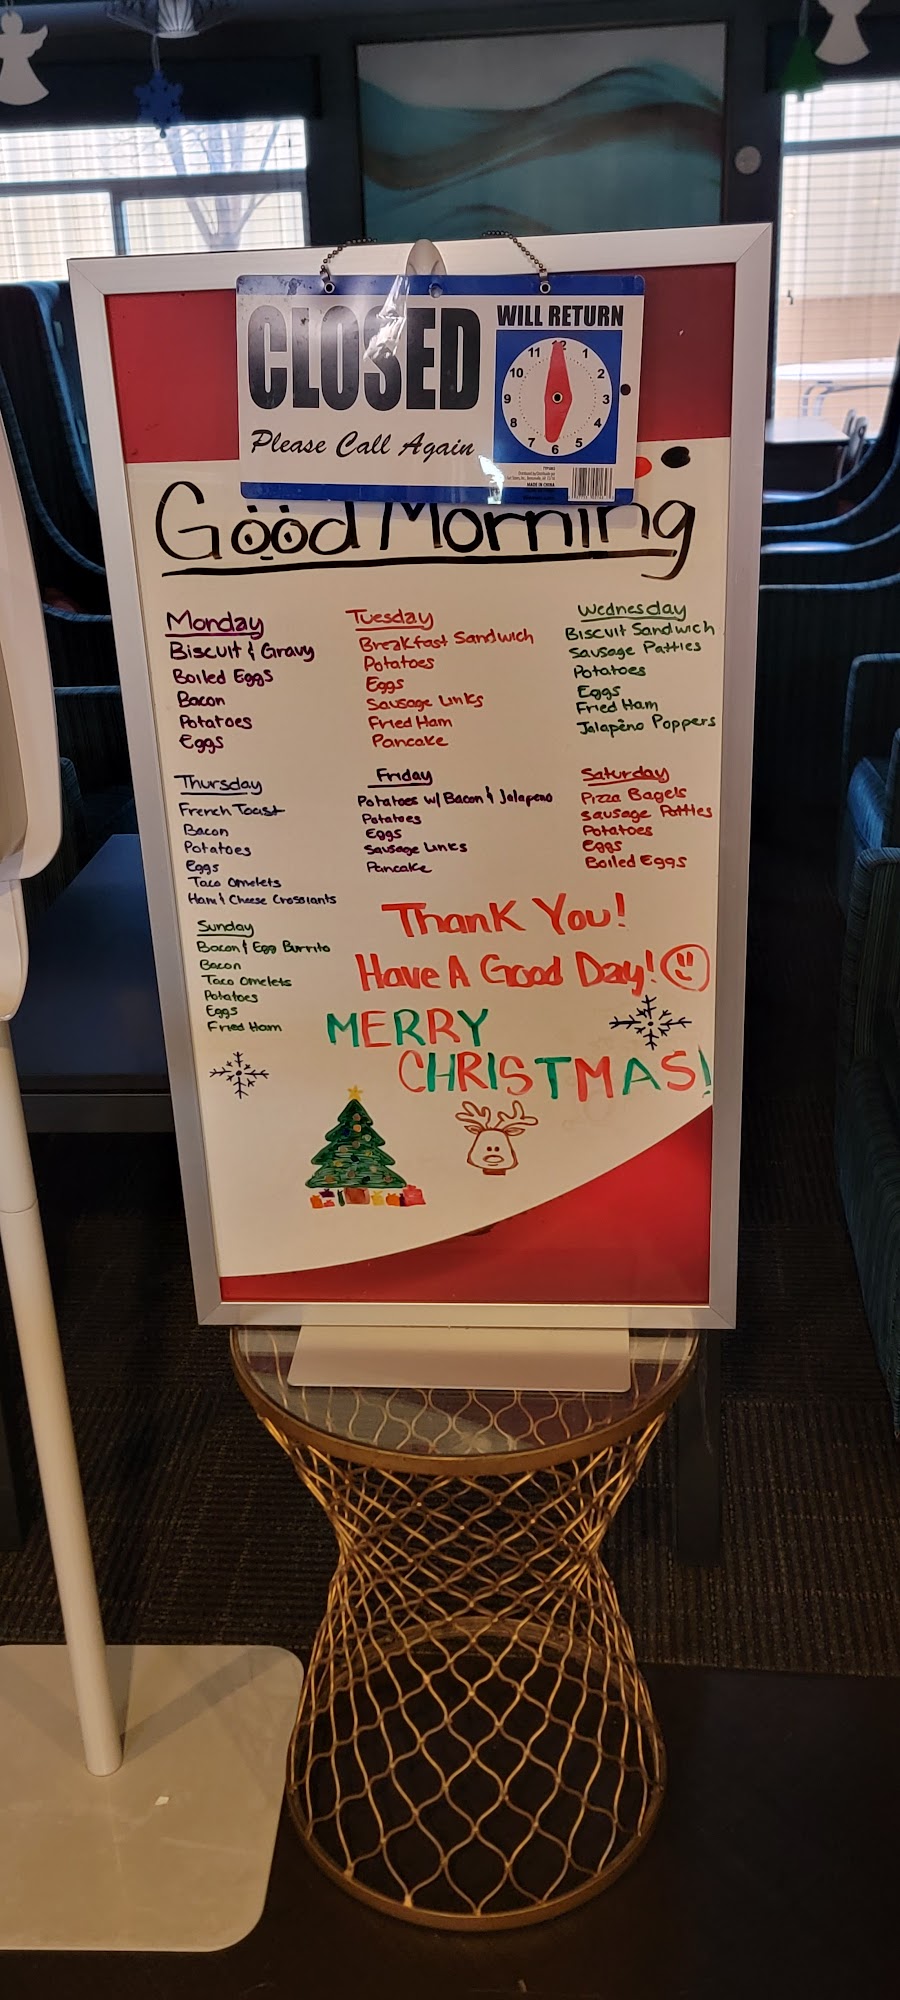 CLOSED
Please Call Again
WILL RETURN
12
1
2
3
4
5
6
7
8
9
10
11
MADE IN CHINA
Good Morning
Monday
Biscuit & Gravy
Boiled Eggs
Bacon
Potatoes
Eggs
Tuesday
Breakfast Sandwich
Potatoes
Eggs
Sausage Links
Fried Ham
Pancake
Wednesday
Biscuit Sandwich
Sausage Patties
Potatoes
Eggs
Fried Ham
Jalapeño Poppers
Thursday
French Toast
Bacon
Potatoes
Eggs
Taco Omelets
Ham & Cheese Crossiants
Friday
Potatoes w/ Bacon & Jalapeno
Potatoes
Eggs
Sausage Links
Pancake
Saturday
Pizza Bagels
Sausage Patties
Potatoes
Eggs
Boiled Eggs
Sunday
Bacon & Egg Burrito
Bacon
Taco Omelets
Potatoes
Eggs
Fried Ham
Thank You!
Have A Good Day!
MERRY
CHRISTMAS!